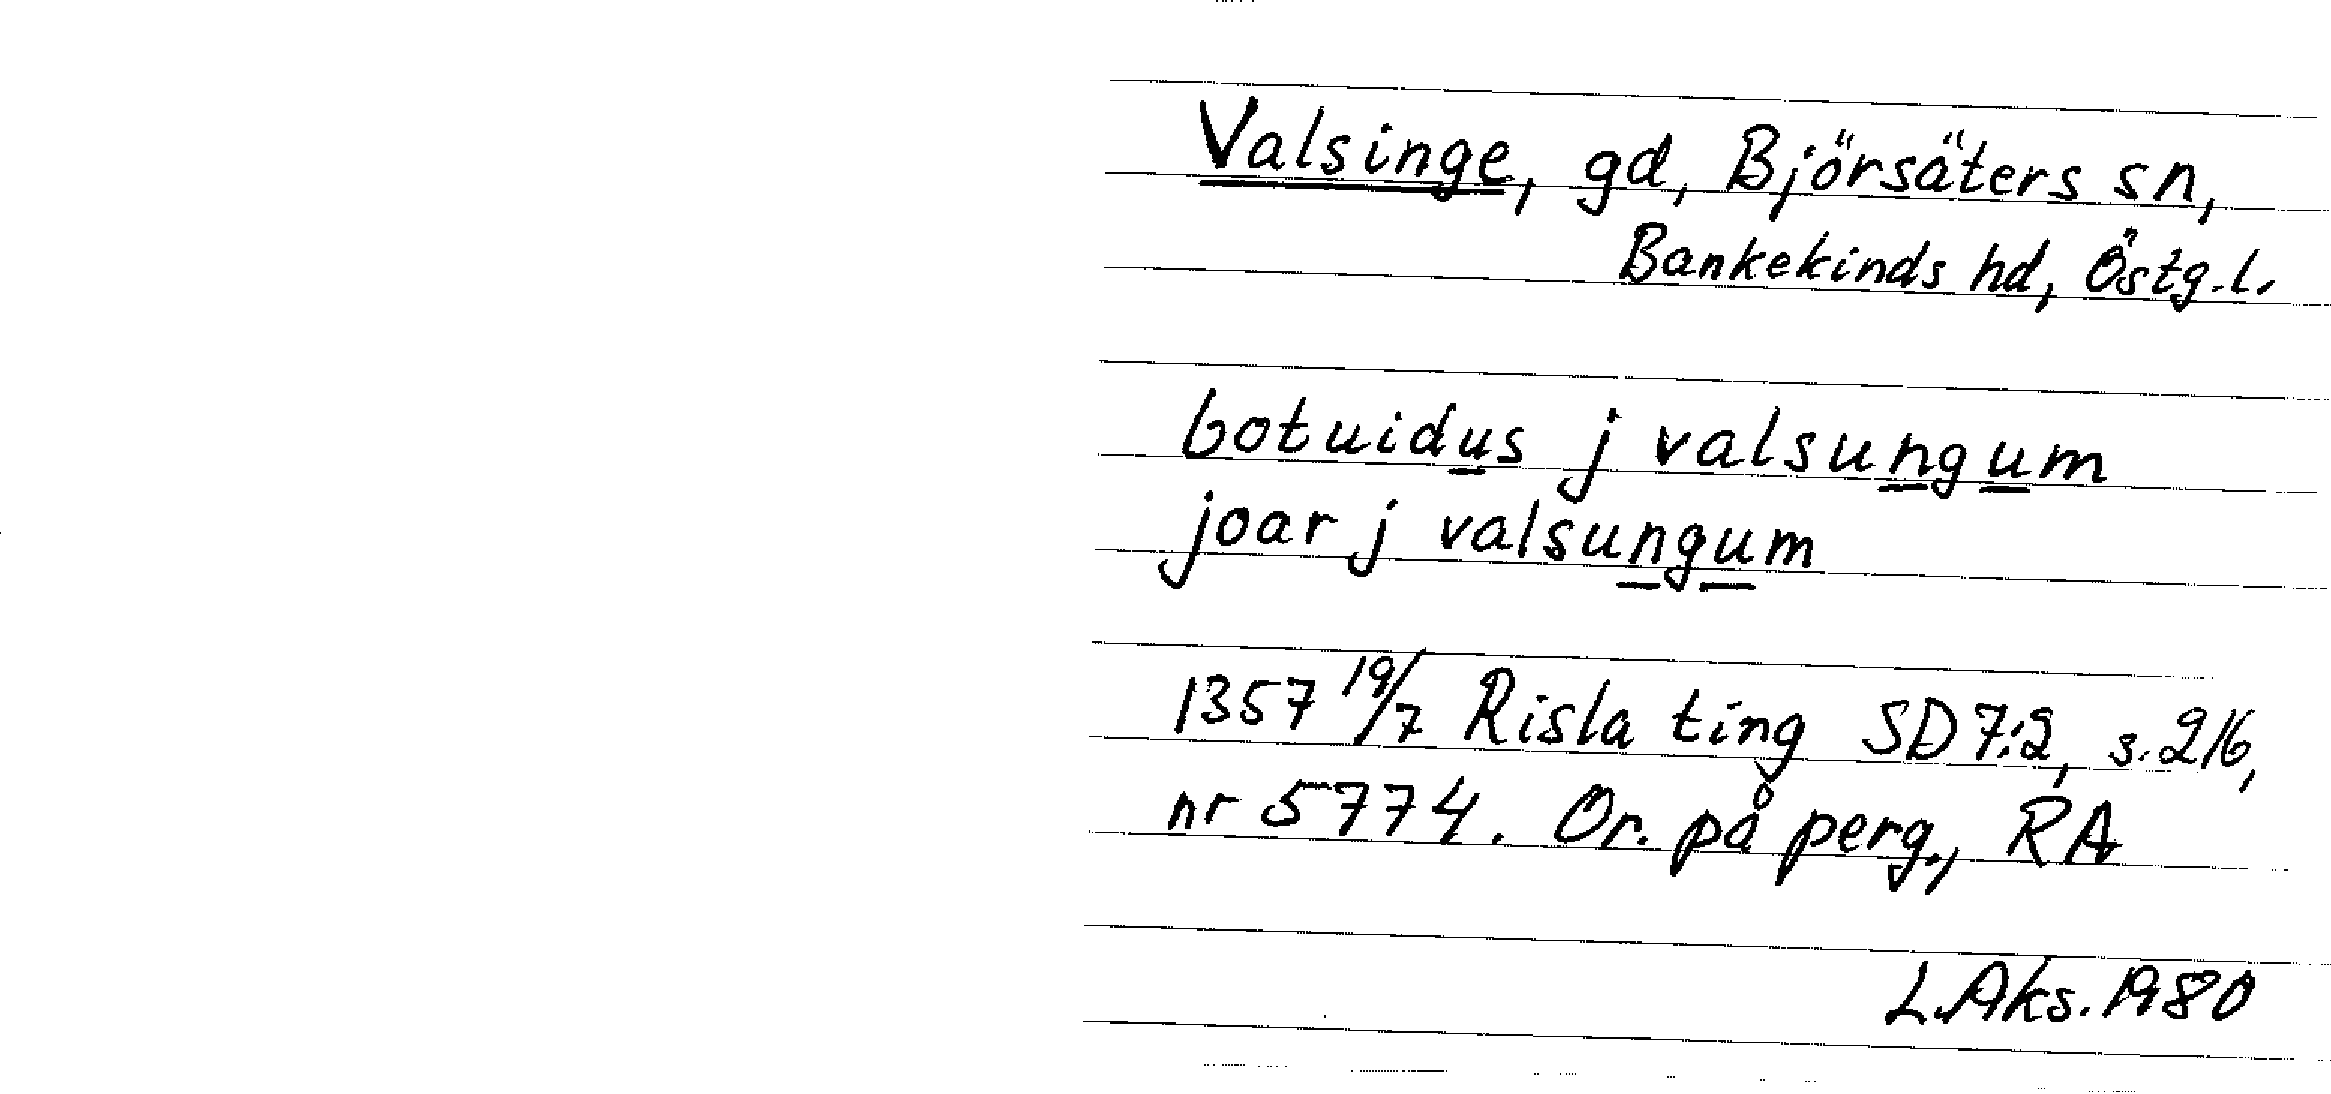 Valsinge, gd, Björsäters sn,
Bankekinds hd, Östg.l.
botuidus j valsungum
joar j valsungum
1357 19/7 Risla ting SD 7:2, s. 216,
nr 5774. Or. på perg., RA
L.Aks. 1980